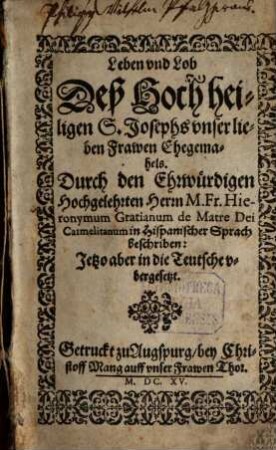 Philipp Wilhelm Pfaltzgrave.
Leben vnd Lob
Deß Hochhei-
ligen S. Josephs vnser lie-
ben Frawen Ehegema-
hels.
Durch den Ehrwürdigen
Hochgelehrten Herrn M. Fr. Hie-
ronymum Gratianum de Matre Dei
Carmelitanum in Hispanischer Sprach
beschriben:
Jetzo aber in die Teutsche v-
bergesetzt.
Getruckt zu Augspurg / bey Chri-
stoff Mang auff vnser Frawen Thor.
M. DC. XV.